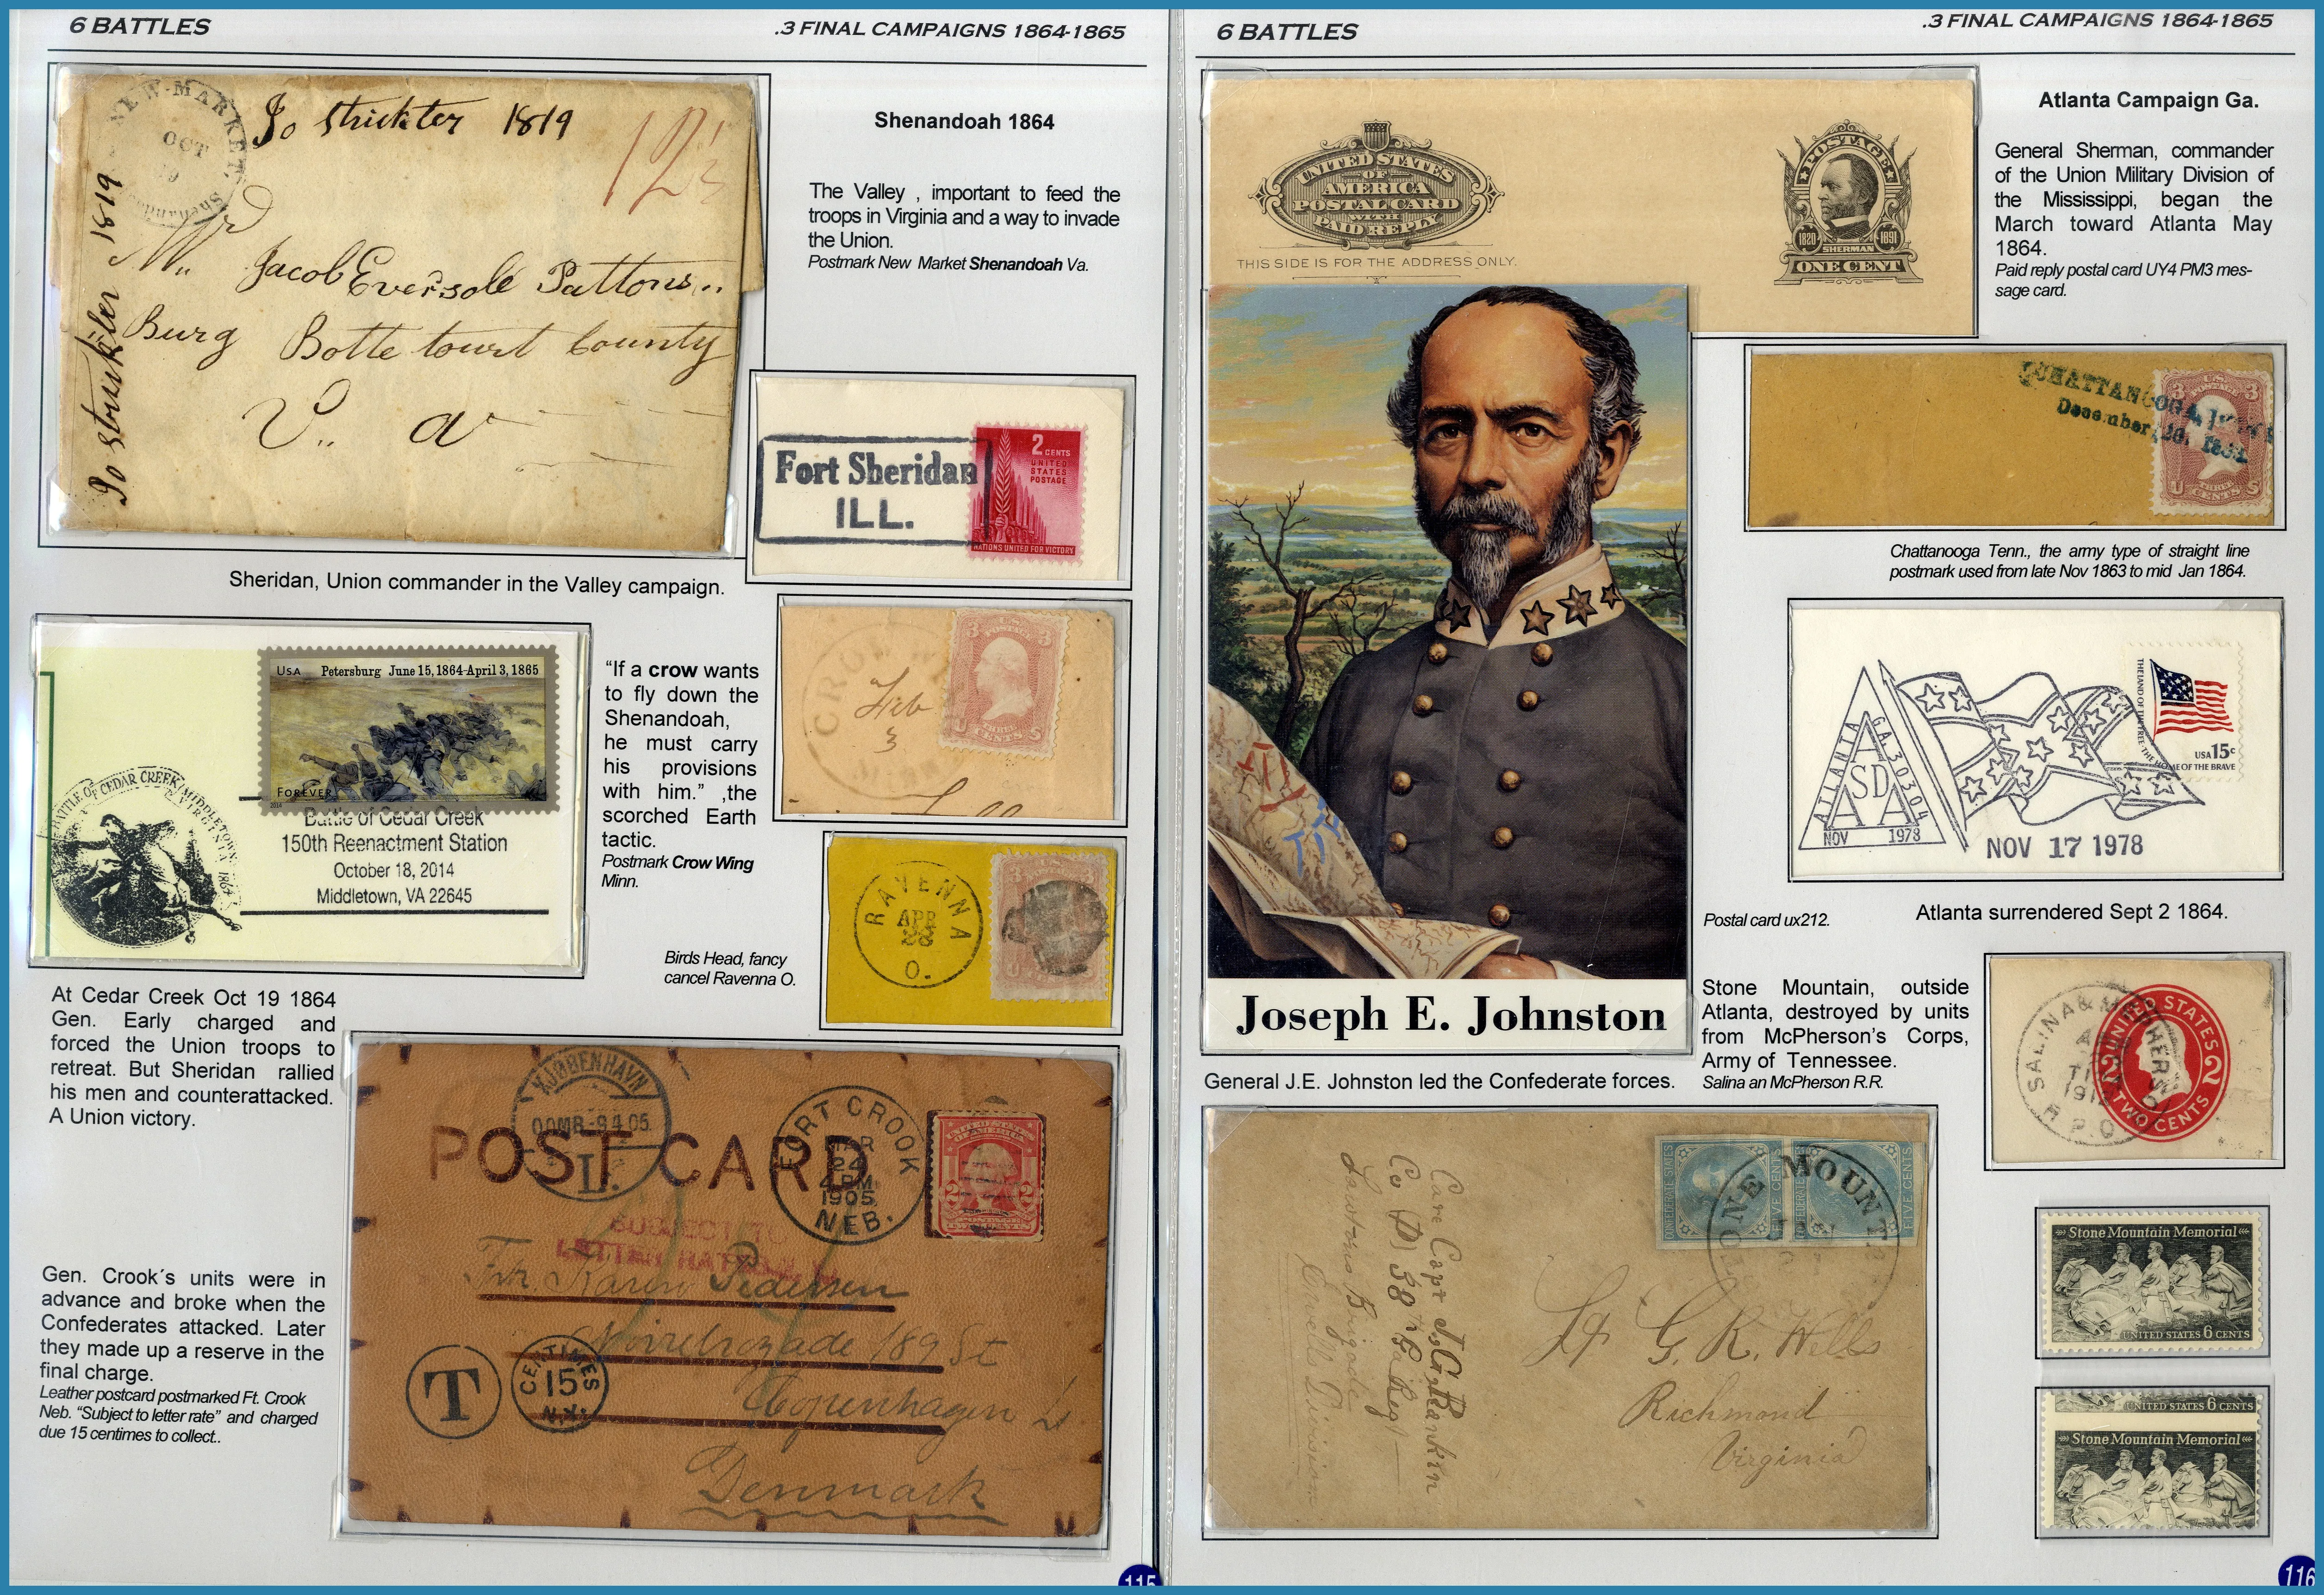 6 BATTLES
.3 FINAL CAMPAIGNS 1864-1865
NEW-MARKET
OCT
Shenandoah
Jo strickler 1819
12½
Jo strickler 1819
Mr
Jacob Eversole Pattons..
Burg Botte tourt County
V.. a
Shenandoah 1864
The Valley , important to feed the
troops in Virginia and a way to invade
the Union.
Postmark New Market Shenandoah Va.
Fort Sheridan
ILL.
2 CENTS
UNITED
STATES
POSTAGE
NATIONS UNITED FOR VICTORY
Sheridan, Union commander in the Valley campaign.
USA Petersburg June 15, 1864-April 3, 1865
FOREVER
2014
BATTLE OF CEDAR CREEK MIDDLETOWN,
VIRGINIA 1864
Battle of Cedar Creek
150th Reenactment Station
October 18, 2014
Middletown, VA 22645
“If a crow wants
to fly down the
Shenandoah,
he must carry
his provisions
with him.” ,the
scorched Earth
tactic.
Postmark Crow Wing
Minn.
CROW
Feb
3
3 3
CENTS
Birds Head, fancy
cancel Ravenna O.
RAVENNA
APR
O.
3 3
At Cedar Creek Oct 19 1864
Gen. Early charged and
forced the Union troops to
retreat. But Sheridan rallied
his men and counterattacked.
A Union victory.
Gen. Crook´s units were in
advance and broke when the
Confederates attacked. Later
they made up a reserve in the
final charge.
Leather postcard postmarked Ft. Crook
Neb. “Subject to letter rate” and charged
due 15 centimes to collect..
KJØBENHAVN
OOMB-9 4 05.
L.
POST CARD
FORT CROOK
MAR
24
4 PM
1905
NEB.
SUBJECT TO
LETTER RATE
Frk. Karen Pedersen
189 St
Copenhagen L.
Denmark
T
CENTIMES
15
N.Y.
115
6 BATTLES
.3 FINAL CAMPAIGNS 1864-1865
UNITED STATES
OF
AMERICA
POSTAL CARD
WITH
PAID REPLY
THIS SIDE IS FOR THE ADDRESS ONLY.
POSTAGE
1820 1891
SHERMAN
ONE CENT
Atlanta Campaign Ga.
General Sherman, commander
of the Union Military Division of
the Mississippi, began the
March toward Atlanta May
1864.
Paid reply postal card UY4 PM3 mes-
sage card.
CHATTANOOGA,
December, 26, 1863.
U.S.
3 POSTAGE 3
THREE
U CENTS S
Chattanooga Tenn., the army type of straight line
postmark used from late Nov 1863 to mid Jan 1864.
ATLANTA
GA 30304
ASDA
NOV 1978
NOV 17 1978
THE LAND OF THE FREE-THE HOME OF THE BRAVE
USA 15c
Postal card ux212.
Atlanta surrendered Sept 2 1864.
Joseph E. Johnston
General J.E. Johnston led the Confederate forces.
Stone Mountain, outside
Atlanta, destroyed by units
from McPherson's Corps,
Army of Tennessee.
Salina an McPherson R.R.
SALINA & McPHERSON
R.P.O.
UNITED STATES
2 2
TWO CENTS
CONFEDERATE STATES
FIVE CENTS
FIVE CENTS
STONE MOUNT
Lt G. R. Wells
Richmond
Virginia
Care Capt J. G. Rankin
Co D 38th Ga Regt
Lawtons Brigade
Ewells Division
Stone Mountain Memorial
UNITED STATES 6 CENTS
UNITED STATES 6 CENTS
Stone Mountain Memorial
116